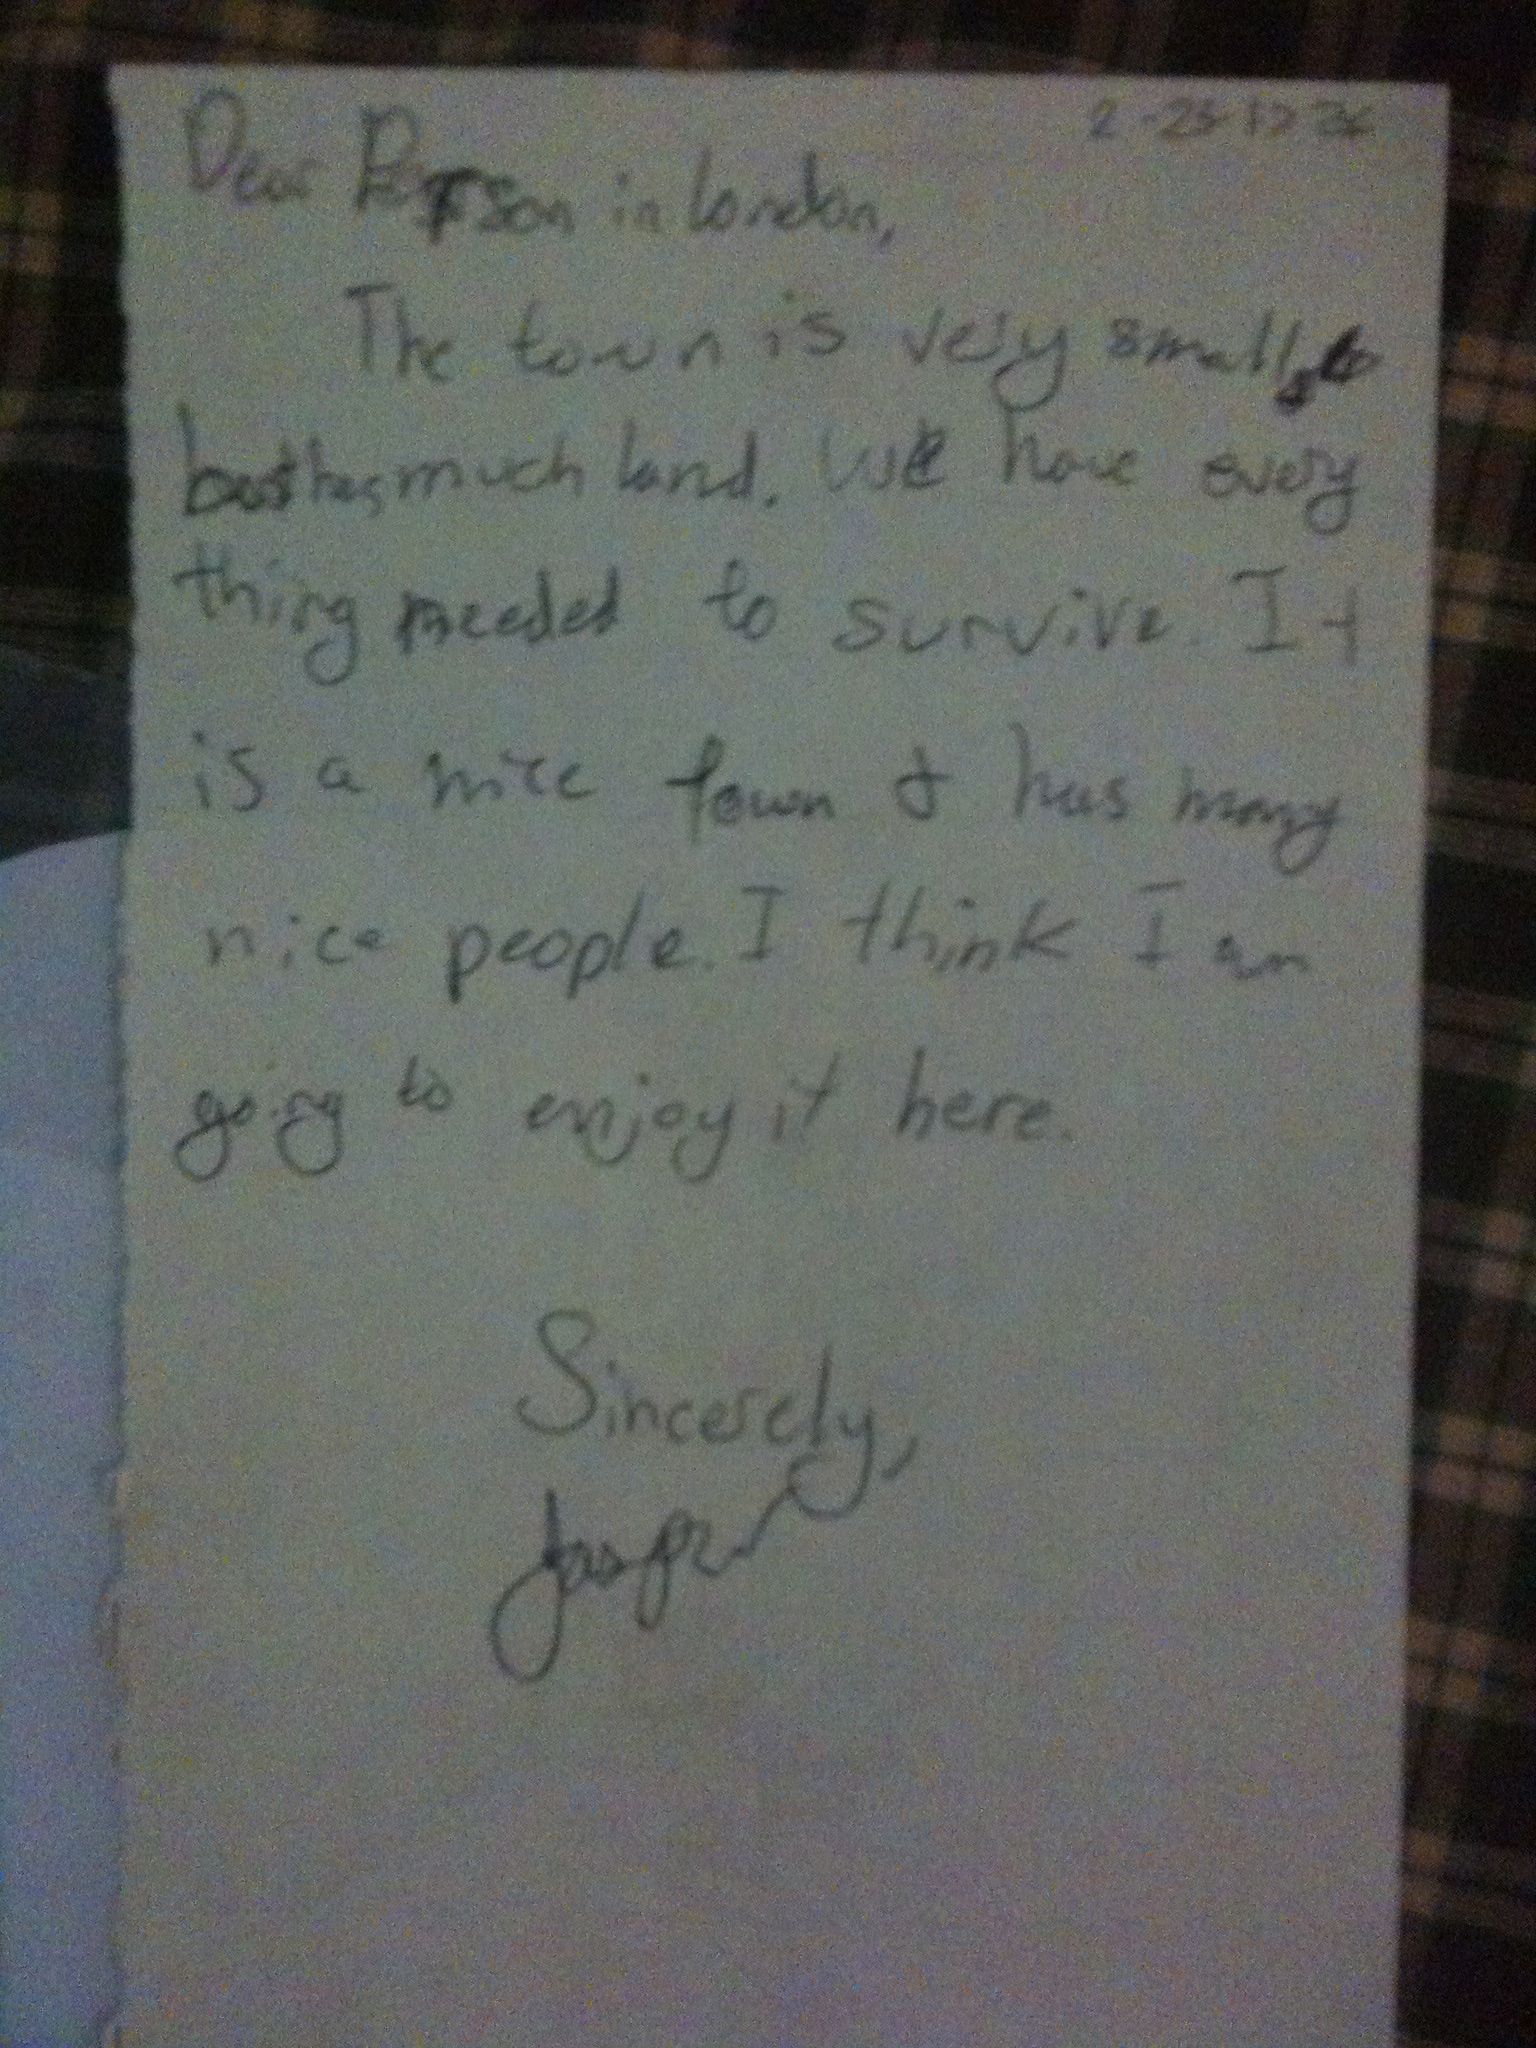 2-25-17
Dear Person in london,
The town is very small,
but has much land. We have every
thing needed to survive. It
is a nice town & has many
nice people. I think I am
going to enjoy it here.
Sincerely,
Jasper